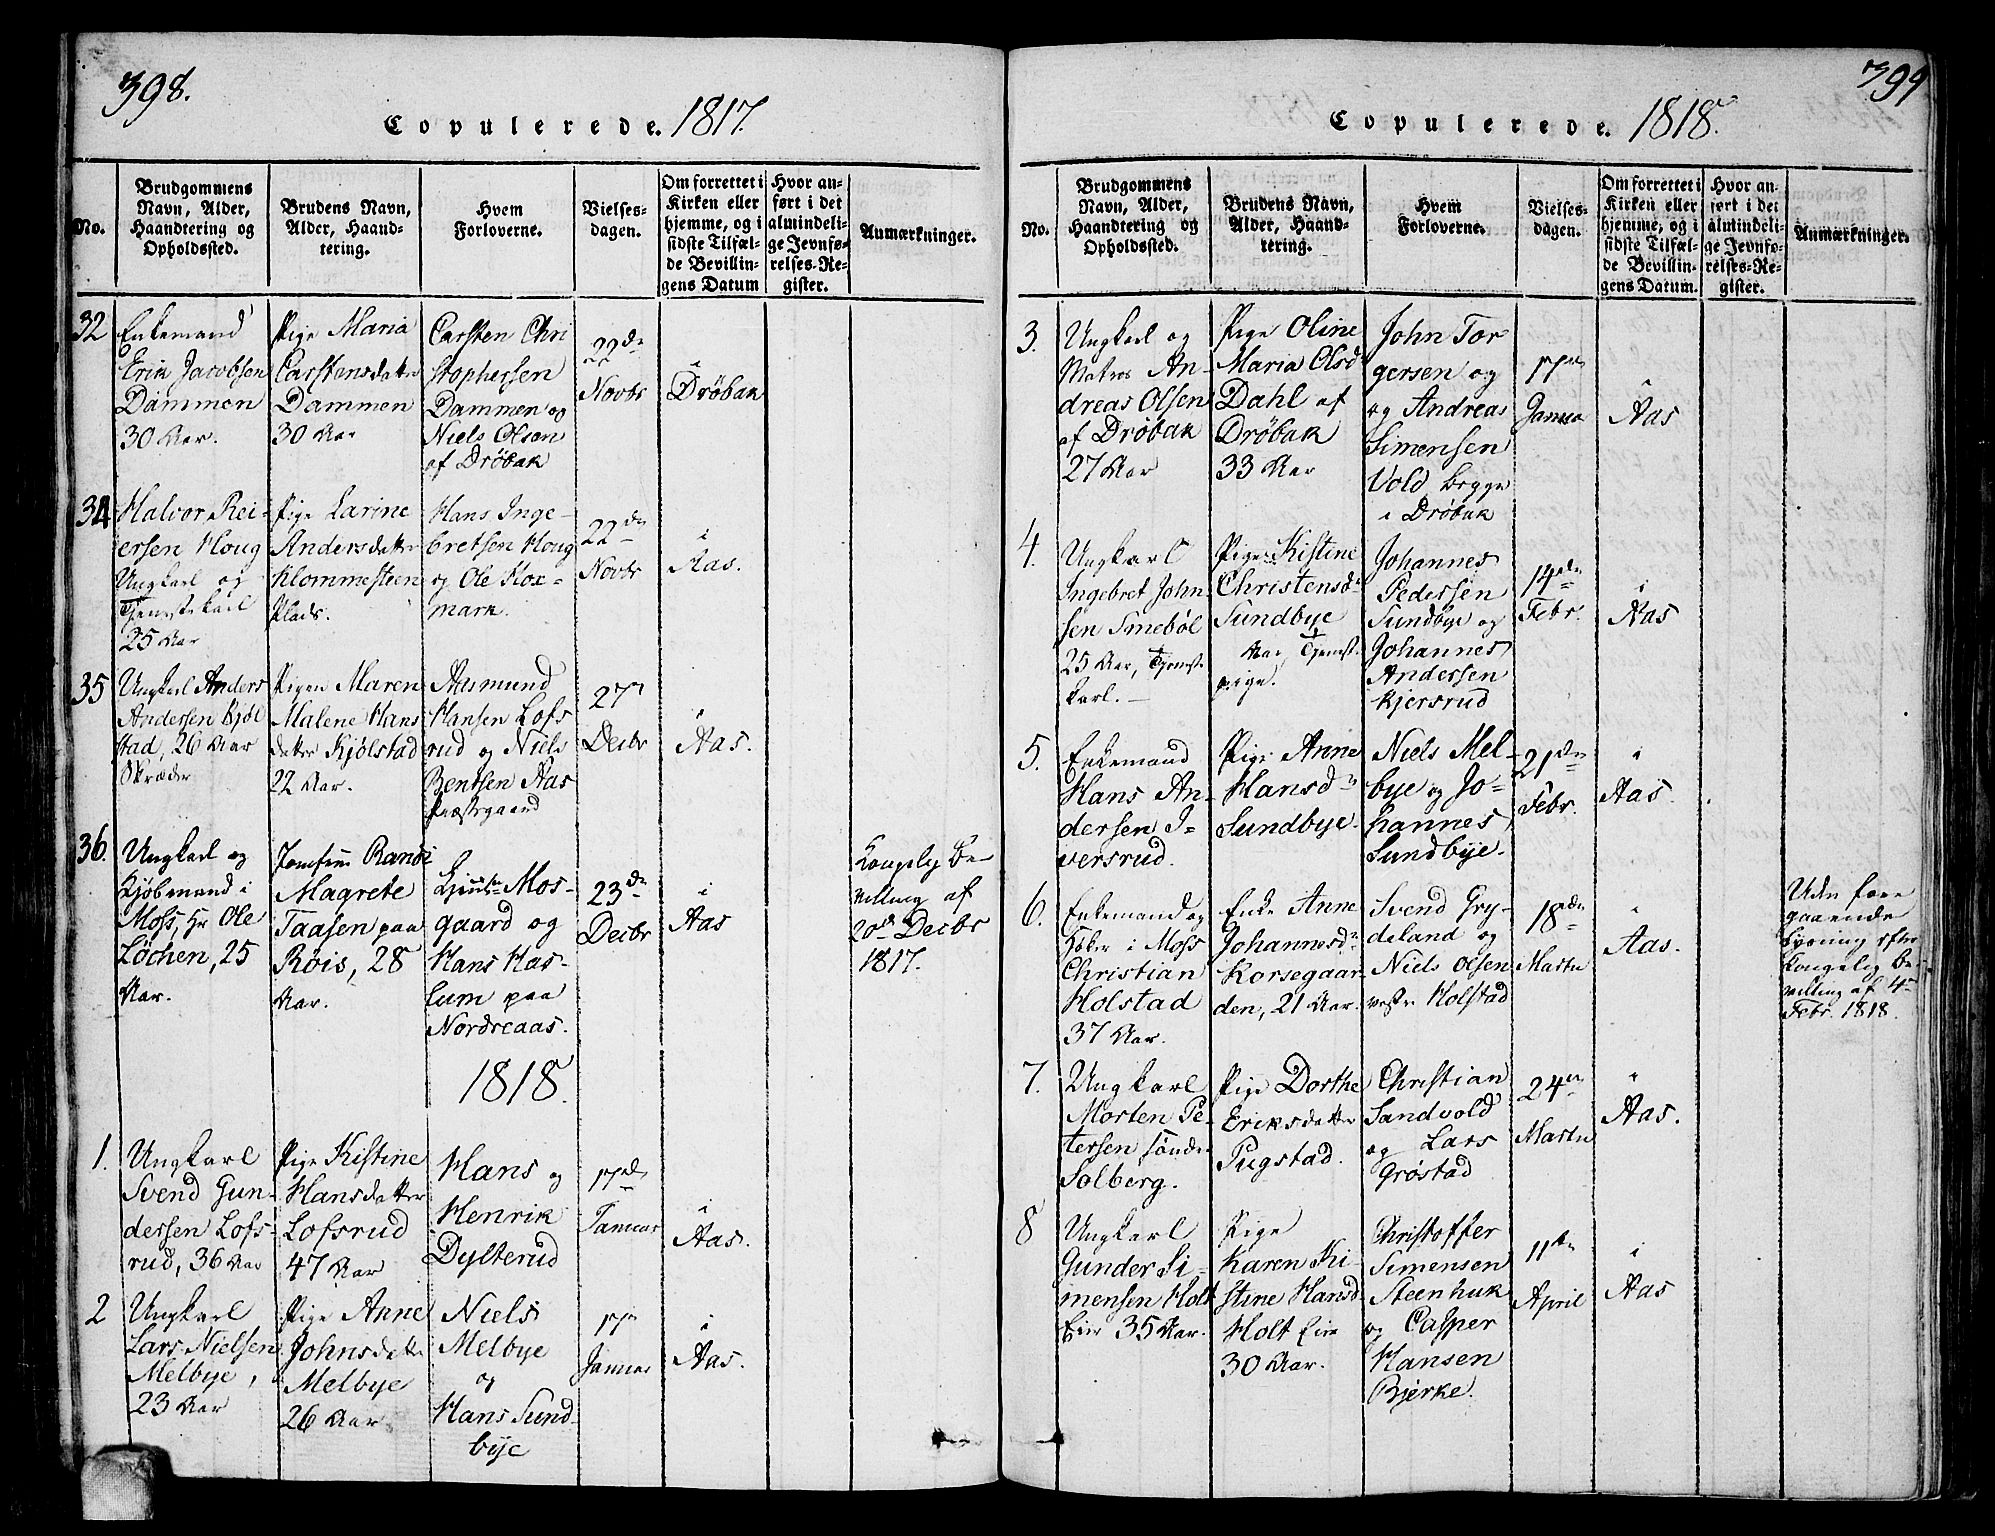 398.
Copulerede. 1817.
No.
Brudgommens
Navn, Alder,
Haandtering og
Opholdssted.
Brudens Navn,
Alder, Haand-
tering.
Hvem
Forloverne.
Vielses-
dagen.
Om forrettet i
Kirken eller
hjemme, og i
sidste Tilfæl-
de Bevillin-
gens Datum
Hvor an-
ført i det
almindeli-
ge Jevnfø-
relses-Re-
gister.
Anmærkninger.
32
Enkemand
Erik Jacobsen
Dammen
30 Aar.
Pige Maria
Carstensdatter
Dammen
30 Aar
Carsten Chri
stophersen
Dammen og
Niels Olsen
af Drøbak
22de
Novbr
i
Drøbak
34
Halvor Rei-
ersen Houg
Ungkarl og
Tjenestekarl
25 Aar
Pige Larine
Andersdatter
Klommesteen
Plads.
Hans Inge-
bretsen Houg
og Ole Kox-
mark.
22de
Novbr
i
Aas.
35
Ungkarl Anders
Andersen Kjøl
stad, 26 Aar
Skræder
Pigen Maren
Malene Hans
datter Kjølstad
22 Aar.
Aasmund
Hansen Lofs
rud og Niels
Bentsen Aas
Præstegaard
27
Decbr
i
Aas.
36.
Ungkarl og
Kjøbmand i
Moss, Hr Ole
Løchen, 25
Aar.
Jomfrue Randi
Magrete
Taasen paa
Røis, 28
Aar.
Mos-
gaard og
Hans Has-
lum paa
Nordreaas.
23de
Decbr
i
Aas
Kongelig be-
villing af
20de Decbr
1817.
1818.
1.
Ungkarl
Svend Gun-
dersen Lofs-
rud, 36 Aar
Pige Kistine
Hansdatter
Lofsrud
47 Aar
Hans og
Henrik
Dylterud
17de
Januar
i
Aas.
2
Ungkarl
Lars Nielsen
Melbye,
23 Aar
Pige Anne
Johnsdatter
Melbye
26 Aar
Niels
Melbye
og
Hans Sund-
bye
17
Januar
i
Aas.
399
Copulerede. 1818.
No.
Brudgommens
Navn, Alder,
Haandtering og
Opholdssted.
Brudens Navn,
Alder, Haand-
tering.
Hvem
Forloverne.
Vielses-
dagen.
Om forrettet i
Kirken eller
hjemme, og i
sidste Tilfæl-
de Bevillin-
gens Datum.
Hvor an-
ført i det
almindeli-
ge Jevnfø-
relses-Re-
gister.
Anmærkninger.
3.
Ungkarl og
Matros An-
dreas Olsen
af Drøbak
27 Aar
Pige Oline
Maria Olsd
Dahl af
Drøbak
33 Aar
John Tor
gersen og
og Andreas
Simensen
Vold begge
i Drøbak
17de
Januar
i
Aas
4.
Ungkarl
Ingebret John-
sen Smebøl
25 Aar, Tjeneste
karl.
Pige Kistine
Christensdr
Sundbye
Aar, Tjeneste
pige.
Johannes
Pedersen
Sundbye og
Johannes
Andersen
Kjersrud
14de
Febr.
i
Aas
5.
Enkemand
Hans An-
dersen I-
versrud.
Pige Anne
Hansdr
Sundbye.
Niels Mel-
bye og Jo-
hannes
Sundbye.
21de
Febr.
i
Aas.
6.
Enkemand og
i Moss
Christian
Holstad
37 Aar.
Enke Anne
Johannesdr
Korsegaar-
den, 21 Aar.
Svend Gry-
deland og
Niels Olsen
vestre Holstad
18de
Martii
i
Aas.
Uden fore
gaaende
Lysning efter
Kongelig be-
villing af 4de
Febr. 1818.
7.
Ungkarl
Morten Pe-
tersen søndre
Solberg.
Pige Dorthe
Eriksdatter
Pugstad.
Christian
Sandvold
og Lars
Grøstad
24de
Martii
i
Aas.
8
Ungkarl
Gunder Si-
mensen Holt
Eie 35 Aar.
Pige
Karen Ki-
stine Hansd
Holt Eie
30 Aar.
Christoffer
Simensen
Steenhuk
og Casper
Hansen
Bjerke.
11te
April
i
Aas